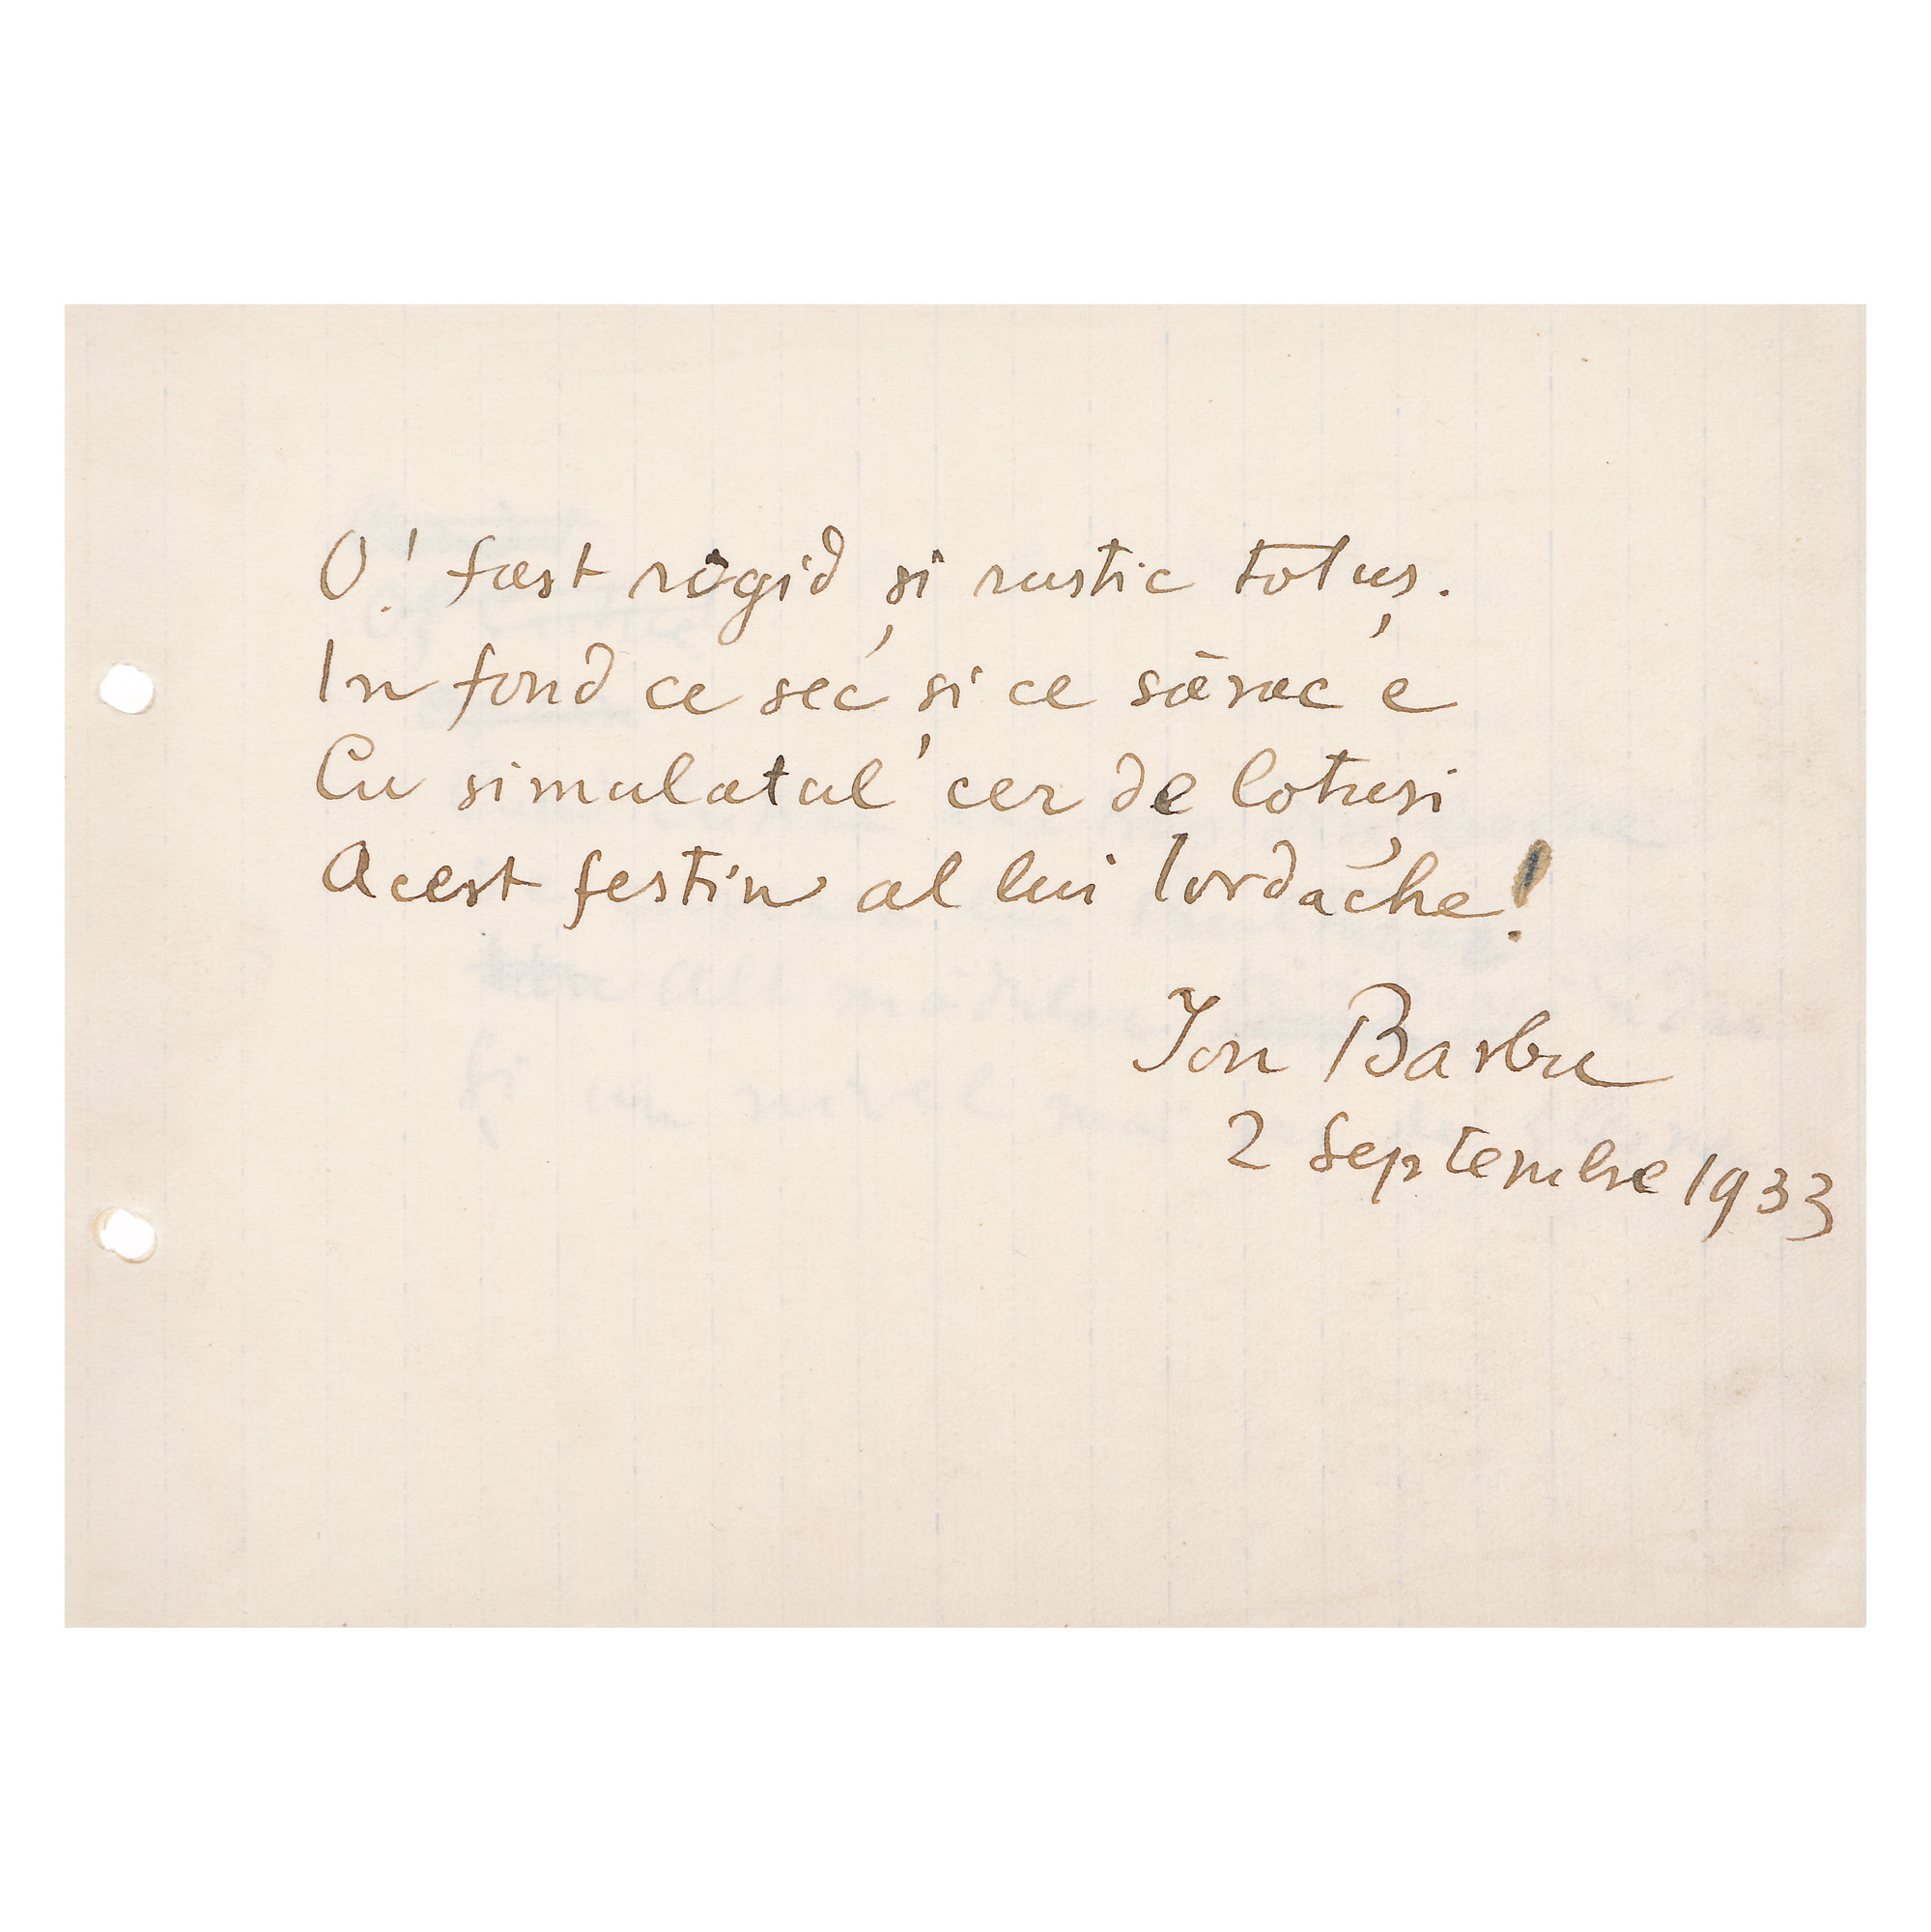 O! fast rigid și rustic totuș.
In fond ce sec și ce sărac e
Cu simulatul cer de lotuși
Acest festin al lui Iordache!
Ion Barbu
2 Septembre 1933